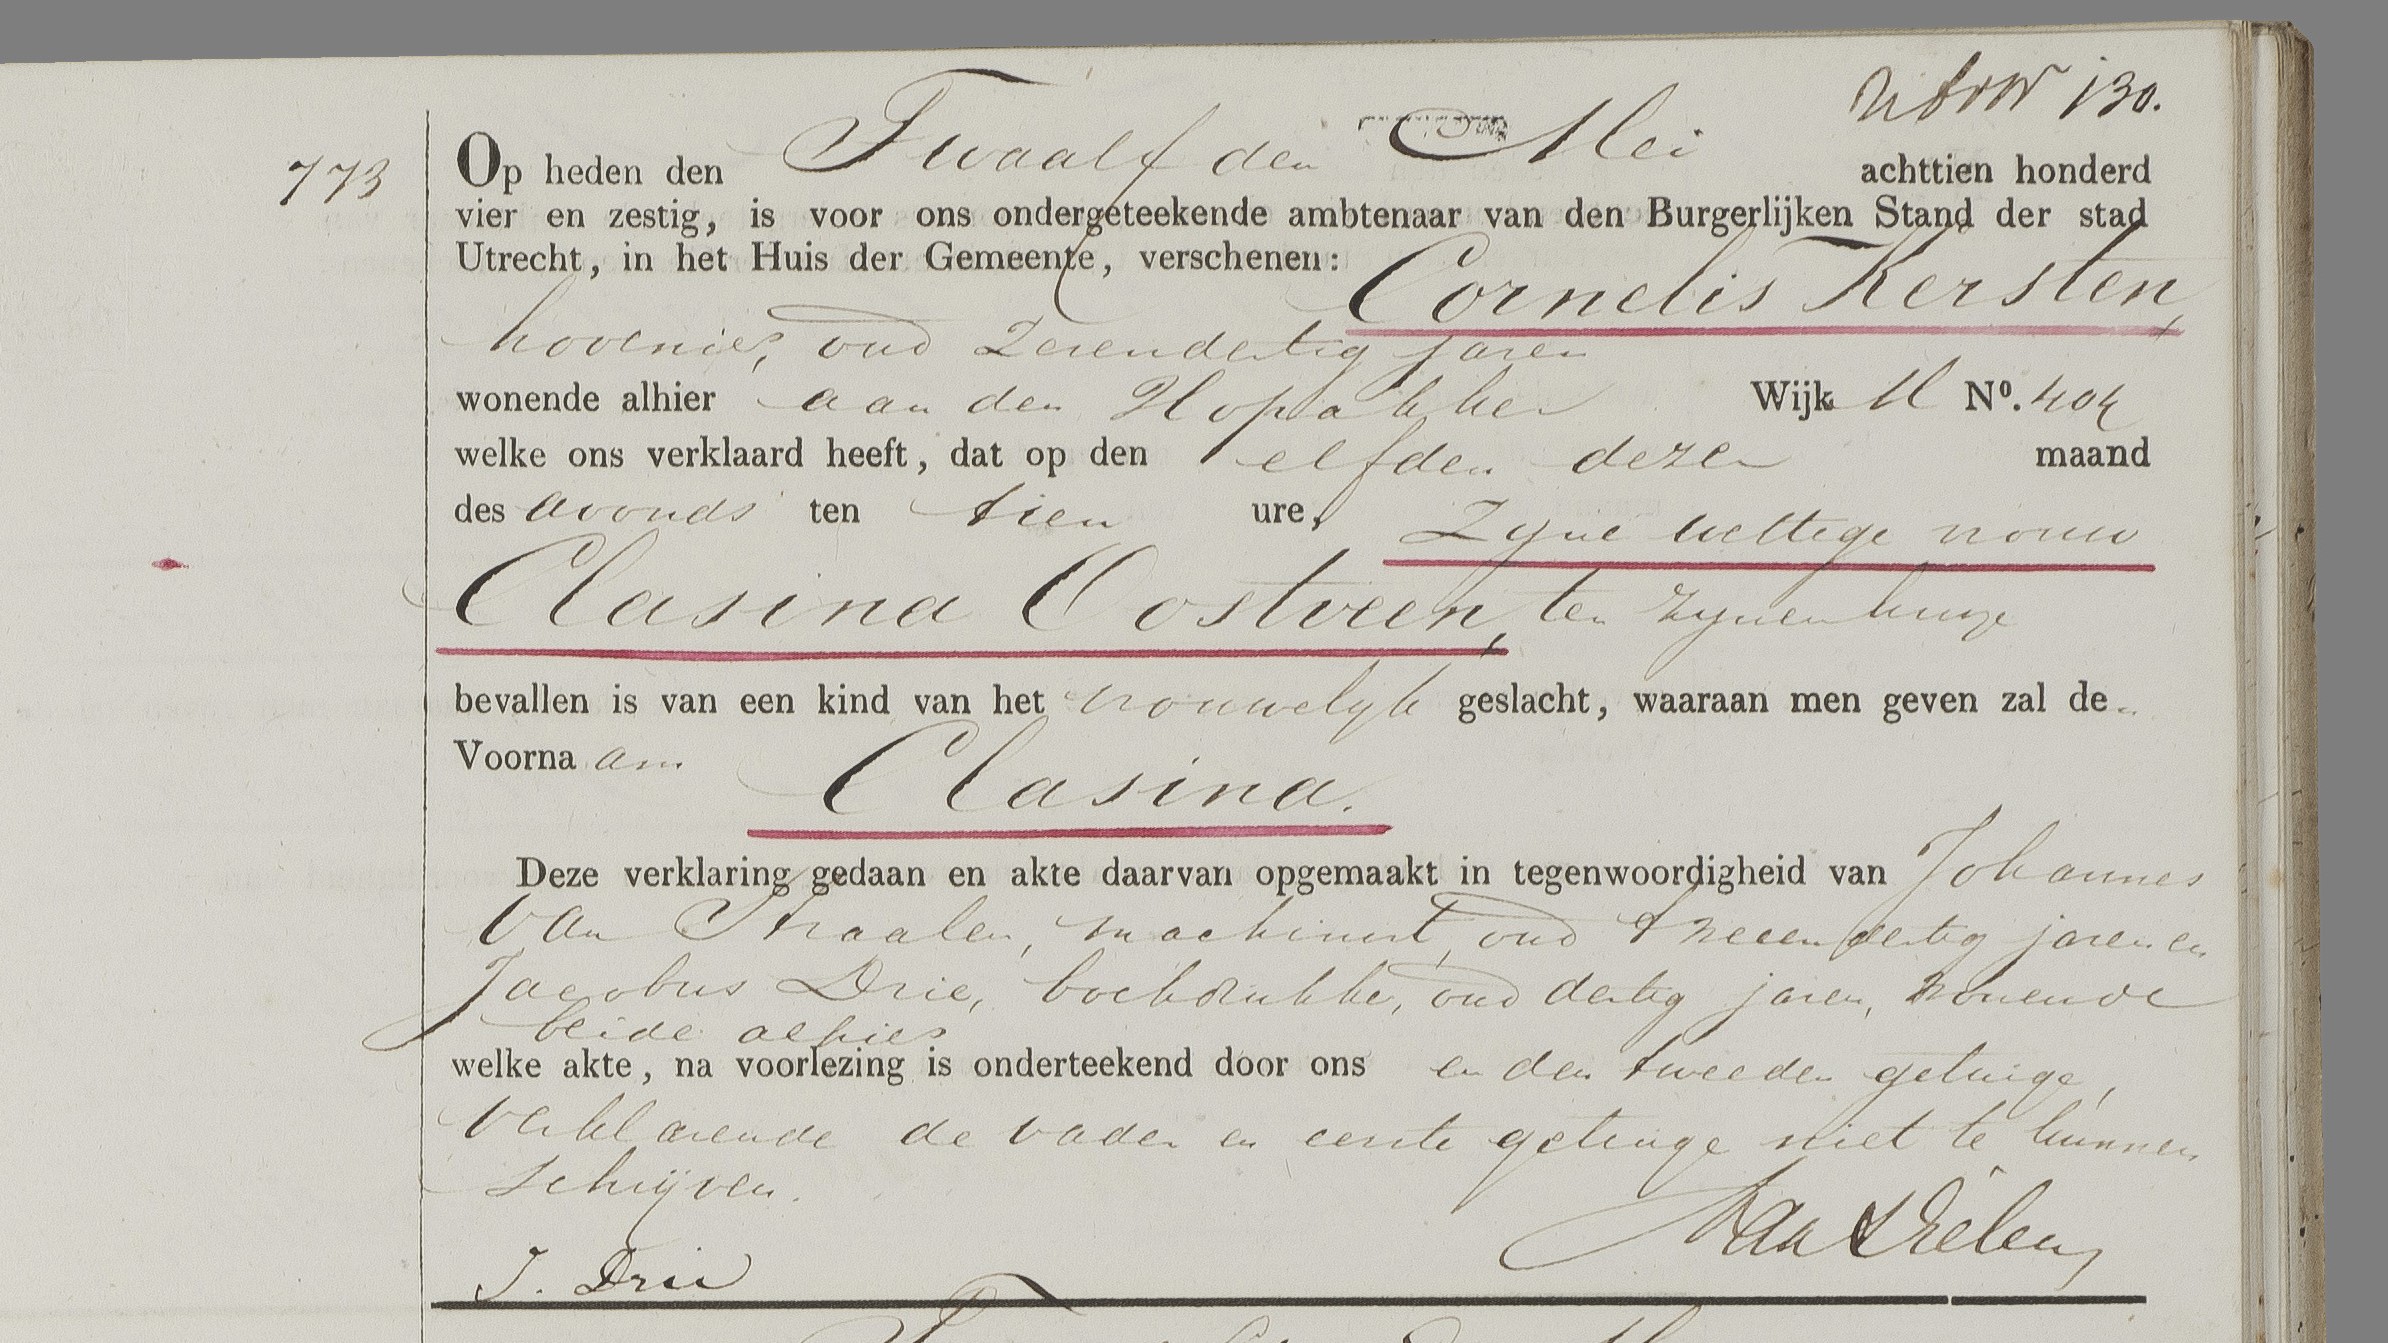 130.
773
Op heden den Twaalfden Mei achttien honderd
vier en zestig, is voor ons ondergeteekende ambtenaar van den Burgerlijken Stand der stad
Utrecht, in het Huis der Gemeente, verschenen: Cornelis Kersten,
hovenier, oud Zevendertig jaren
wonende alhier aan den Hopakker Wijk M Nº. 404
welke ons verklaard heeft, dat op den elfden dezer maand
des avonds ten tien ure, Zyne wettige vrouw
Clasina Oostveen, ten zynen huize
bevallen is van een kind van het vrouwelyk geslacht, waaraan men geven zal den
Voornaam Clasina.
Deze verklaring gedaan en akte daarvan opgemaakt in tegenwoordigheid van Johannes
van Straalen, machinist, oud tweeendertig jaren en
Jacobus Drie, boekdrukker, oud dertig jaren, wonende
beide alhier
welke akte, na voorlezing is onderteekend door ons en den tweeden getuige,
verklarende de vader en eerste getuige niet te kunnen
schrijven.
J. Drie